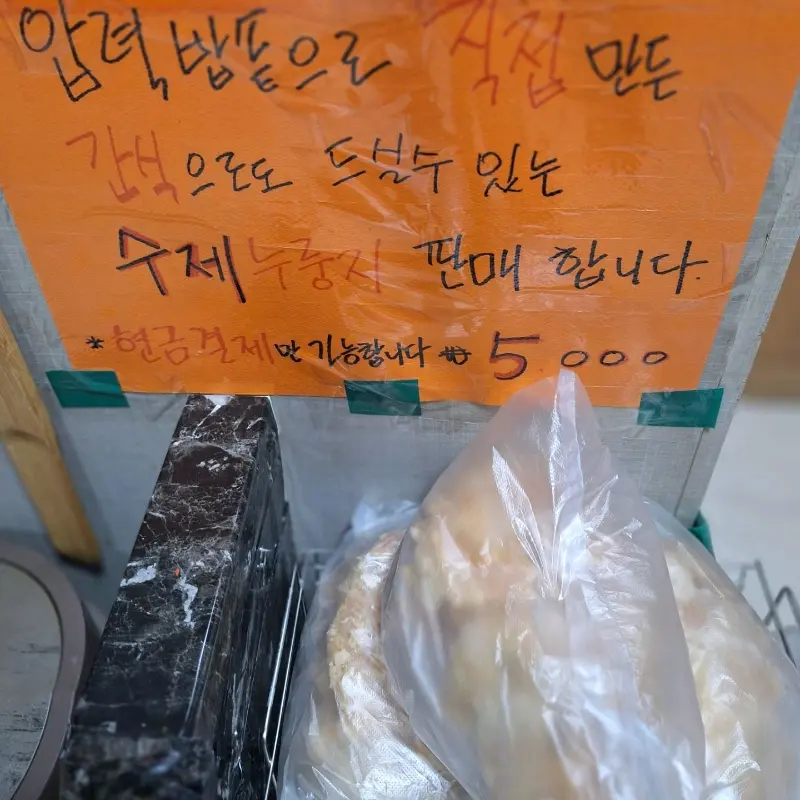 압력밥솥으로 직접 만든
간식으로도 드실수 있는
수제 누룽지 판매 합니다.
* 현금결제만 가능합니다 ₩ 5.000